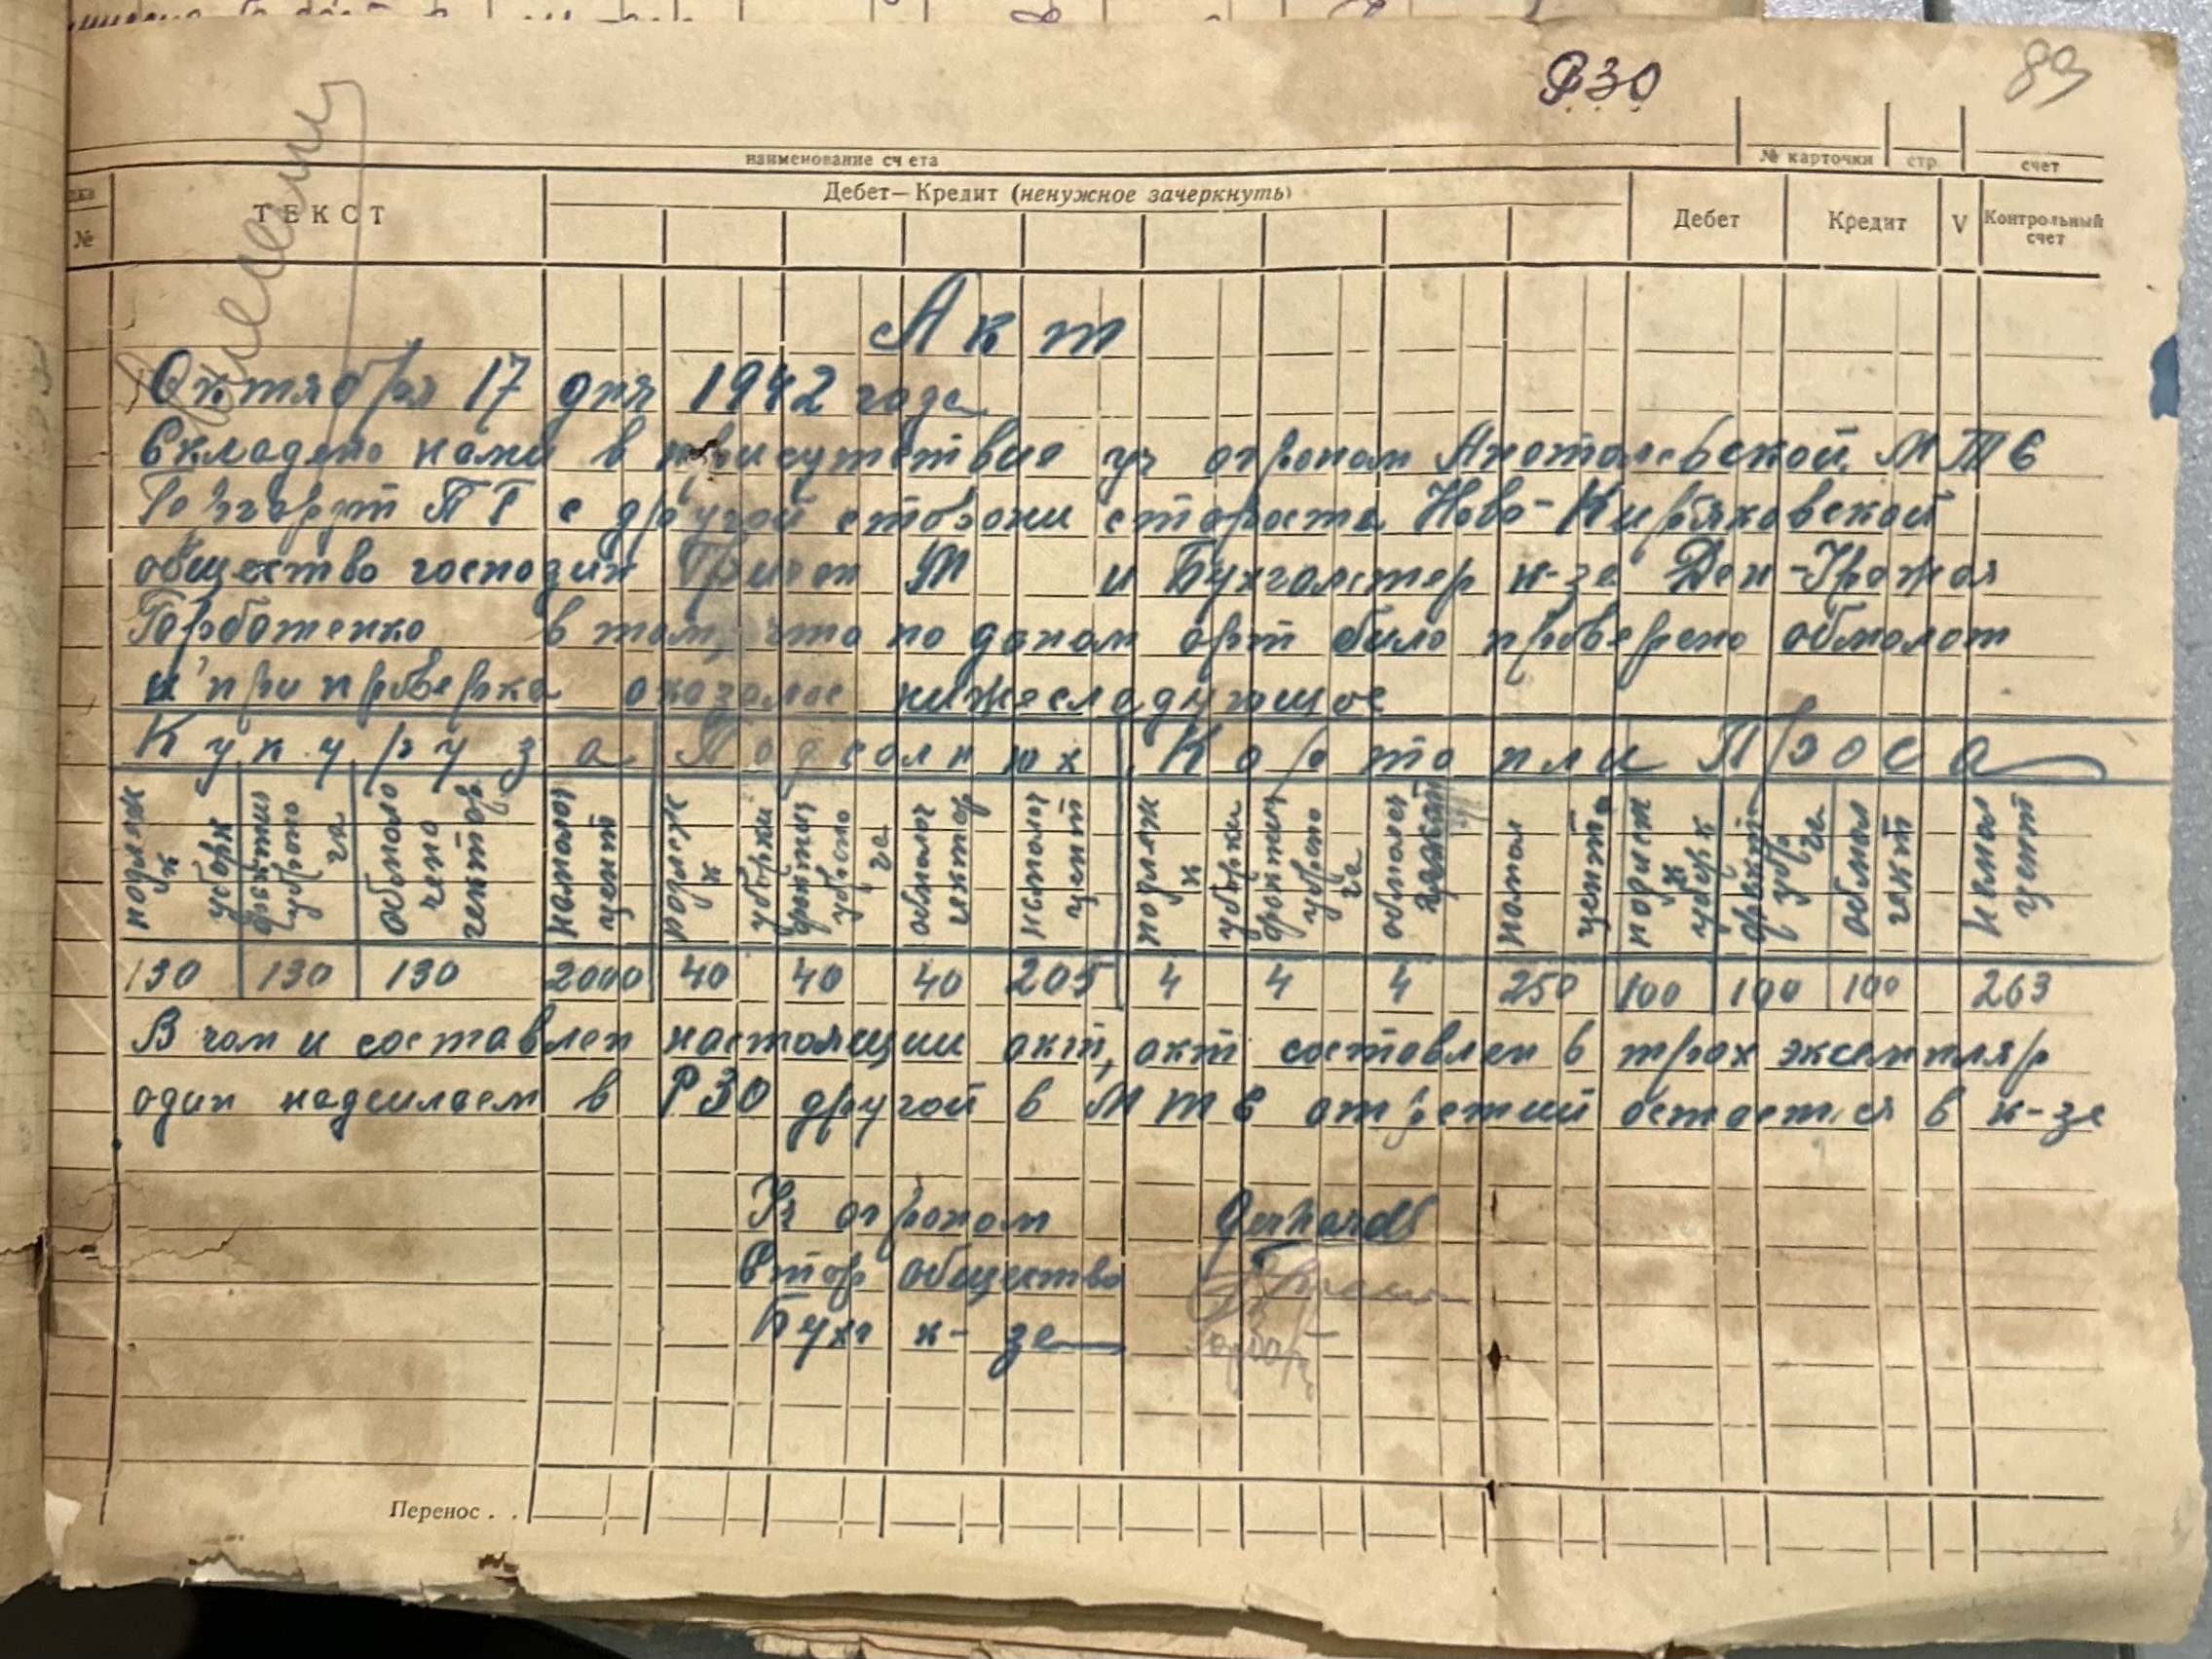 РЗО 89
наименование счета № карточки стр. счет
№ ТЕКСТ Дебет—Кредит (ненужное зачеркнуть) Дебет Кредит V Контрольный счет
Акт
Октября 17 дня 1942 года
Складено нами в присутствие уч агроном Анатольевской МТС
Гергардт ПГ с другой сторони староста Ново-Кирьяковской
общество господин Гричан М и Бухгалтер к-за Ден-Урожая
Горботенко в том, что по даном арт било проверено обмолот
и при проверка оказалос нижеследующое
Кукуруза Подсолнюх Картопли Проса
подлеж к уборк фактич убрано га обмоло чено гектар намолот цент подлеж к уборки фактич убрано га обмолоч гектар намолот центн подлеж к уборки фактич убрано га обмолоч намол центн подлеж к уборк факт убр га обмол гект намол цент
130 130 130 2000 40 40 40 205 4 4 4 250 100 100 100 263
В чом и составлен настоящии акт, акт составлен в трох экземпляр
один надсилаем в РЗО другой в МТС отретий остается в к-зе
Уч агроном Gerhardt
Стор общество
Бухг к-за Горбат
Перенос . .